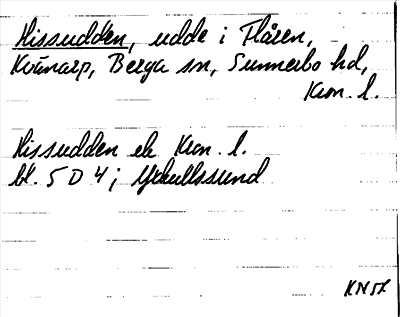 Hissudden, udde i Flåren,
Kvänarp, Berga sn, Sunnerbo hd,
Kron. l.
Hissudden ek Kron. l.
bl. 5 D 4;
KN57